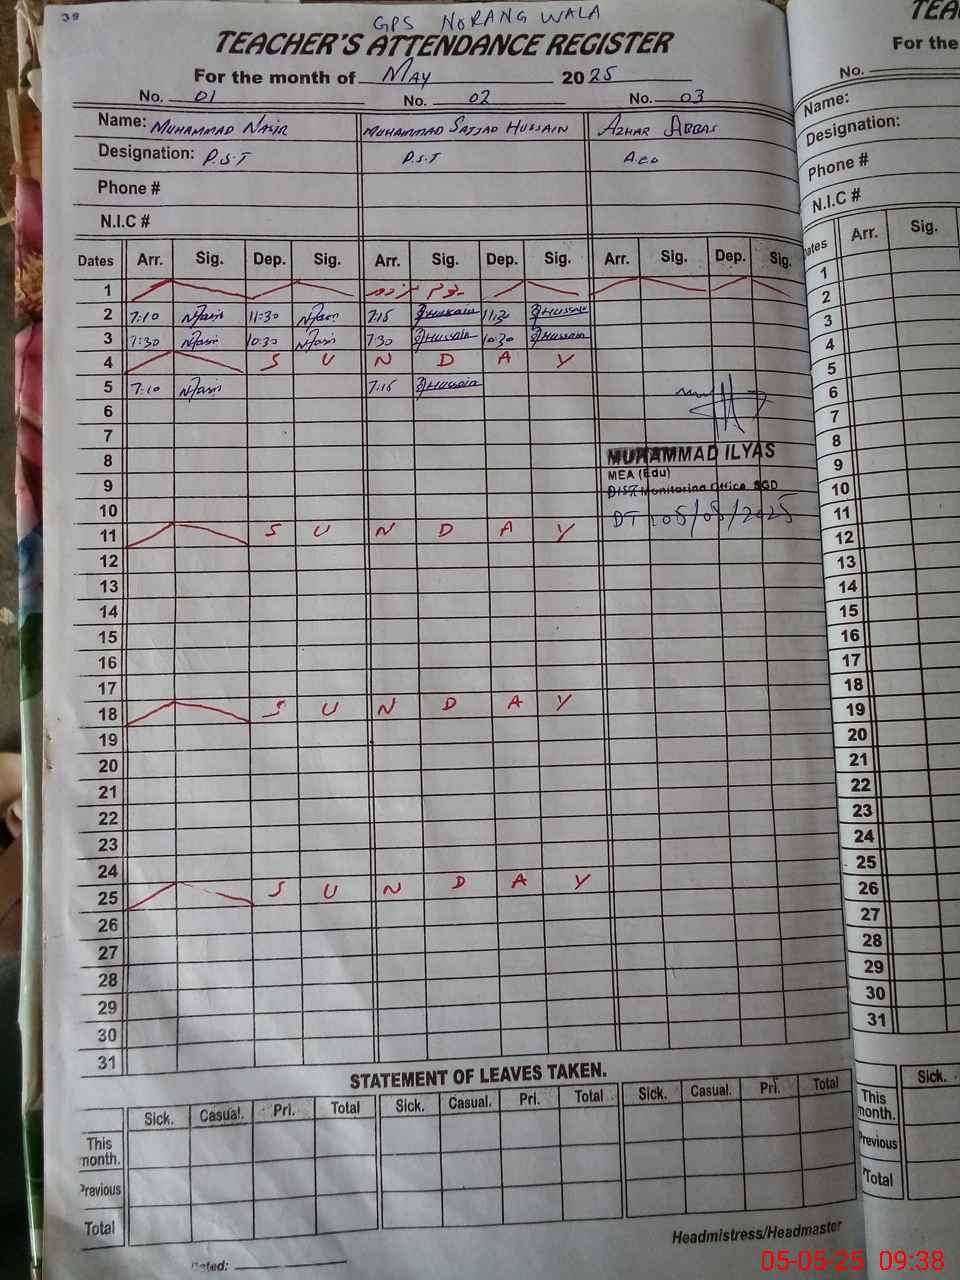 38
GPS NORANG WALA
TEACHER'S ATTENDANCE REGISTER
For the month of May 2025
No. 01 No. 02 No. 03
Name: MUHAMMAD NASIR MUHAMMAD SAJJAD HUSSAIN AZHAR ABBAS
Designation: P.S.T P.S.T
Phone #
N.I.C #
Dates Arr. Sig. Dep. Sig. Arr. Sig. Dep. Sig. Arr. Sig. Dep. Sig.
1 یوم
2 7:10 Nasir 11:30 Nasir 7:15 Hussain 11:30 Hussain
3 7:30 Nasir 10:30 Nasir 7:30 Hussain 10:30 Hussain
4 S U N D A Y
5 7:10 Nasir 7:15 Hussain
6
7
8
9
10
11 S U N D A Y
12
13
14
15
16
17
18 S U N D A Y
19
20
21
22
23
24
25 S U N D A Y
26
27
28
29
30
31
MUHAMMAD ILYAS
MEA (Edu)
DISTT Monitoring Office SGD
DT 05/05/2025
STATEMENT OF LEAVES TAKEN.
Sick. Casual. Pri. Total Sick. Casual. Pri. Total Sick. Casual. Pri. Total
This month.
Previous
Total
Headmistress/Headmaster
Dated:
TEA
For the
No.
Name:
Designation:
Phone #
N.I.C #
Dates Arr. Sig.
1
2
3
4
5
6
7
8
9
10
11
12
13
14
15
16
17
18
19
20
21
22
23
24
25
26
27
28
29
30
31
Sick.
This month.
Previous
Total
05-05-25 09:38